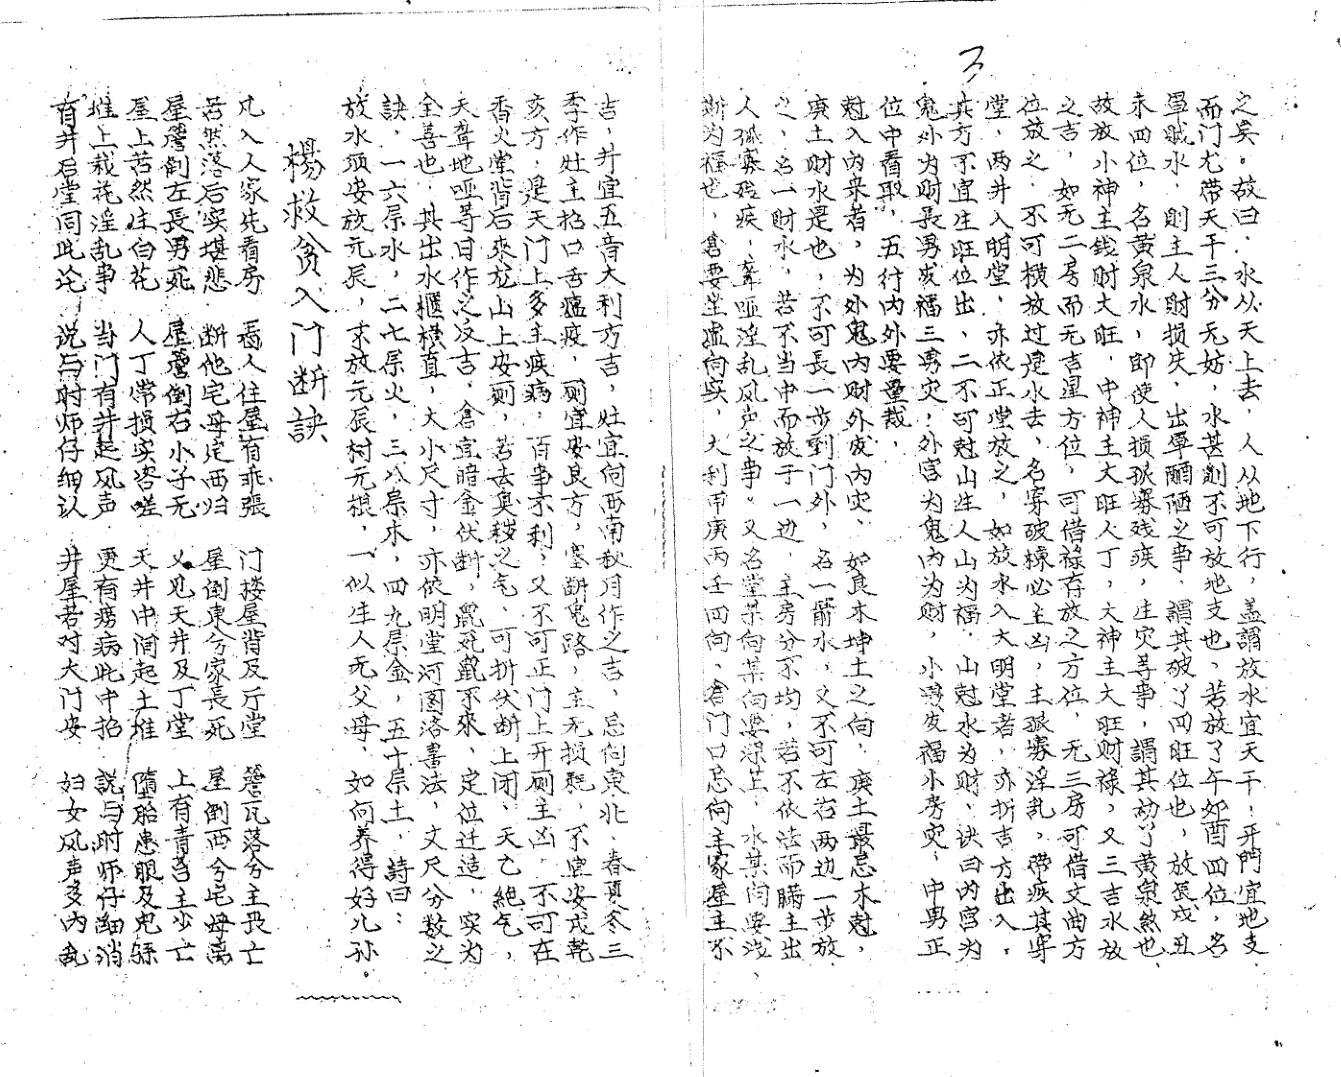 之矣。故曰，水从天上去，人从地下行，盖謂放水宜天干；开門宜地支，
而门尤帶天干三分无妨，水甚剮不可放地支也，若放了午卯酉四位，名
單賊水，則主人財損失，出單酗陋之事，謂其破了四旺位也，放辰戌丑
未四位，名黃泉水，即使人損孤寡残疾，生灾等事，謂其刼了黃泉煞也，
故放小神主錢財大旺，中神主大旺人丁，大神主大旺财禄，又三吉水放
之吉，如无二房而无吉星方位，可借禄存放之方位，无三房可借文曲方
位放之，不可横放过是水去，名穿破棟必主凶，主狠寡淫乱，帶疾其穿
堂，两井入明堂，亦依正堂放之，如放水入大明堂者，亦折吉方出入。
其方不宜生旺位出，二不可尅山生人山为福，山尅水为财，诀曰内宫为
鬼外为财長男发福三男灾，外宫为鬼内为财，小男发福小房灾，中男正
位中看取，五行内外要量裁，
尅入内来者，为外鬼内财外发内灾，如艮木坤土之向，庚土最忌木尅，
庚土财水是也，不可長一步到门外，名一箭水，又不可左右两边一步放
之，名一財水，若不当中而放于一边，主房分不均，若不依法而瞒主出
人孤寡残疾，聾哑淫乱风声之事。又名堂某向某向要深某，水某向要浅，
断为福也，倉要坐虚向实，大利甲庚丙壬四向，倉门口忌向主家屋主不
吉，井宜五音大利方吉，灶宜向西南秋月作之吉，忌向東北，春夏冬三
季作灶主招口舌瘟疫，厕宜安良方，塞断鬼路，主无損耗，不宜安戌乾
亥方，是天门上多主疾病，百事不利，又不可正门上开厕主凶，不可在
香火堂背后來龙山上安厕，若去臭秽之气，可折伏断上闭，天乙绝气，
天聋地哑等日作之反吉，倉宜暗金伏断，鼠死鼠不來，定位迁造，实为
全善也，其出水櫃横直，大小尺寸，亦依明堂河图洛書法，文尺分数之
訣，一六属水，二七属火，三八属木，四九属金，五十属土，詩曰：
放水须安放元辰，不放元辰树无根，一似生人无父母，如何养得好儿孙。
楊救貧入门断訣
凡入人家先看房　看人住屋有乖張　门楼屋背及厅堂　簷瓦落兮主畏亡
若然落后实堪悲　断他宅母定西归　屋倒東兮家長死　屋倒西兮宅母离
屋簷倒左長男死　屋簷倒右小子无　又见天井及丁堂　上有青苔主少亡
屋上若然生白花　人丁常損实咨嗟　天井中间起土堆　墮胎患眼及兒孫
堆上栽花淫乱事　当门有井起风声　更有痨病此中招　説与时师仔細消
有井后堂同此论　说与时师仔细认　井屋若对大门安　妇女风声多内乱